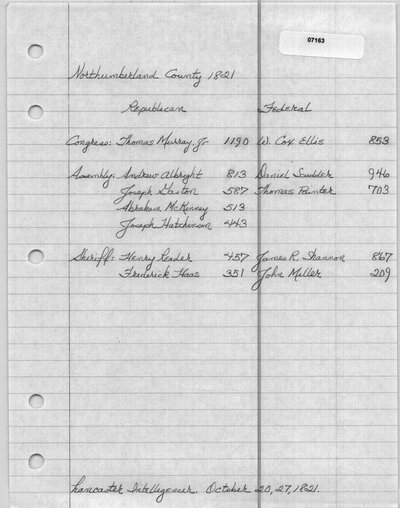 07163
Northumberland County 1821
Republican Federal
Congress: Thomas Murray, Jr 1190 W. Cox Ellis 853
Assembly: Andrew Albright 813 Daniel Scudder 946
Joseph Gaston 587 Thomas Painter 703
Abraham McKinney 513
Joseph Hutchinson 443
Sheriff: Henry Reader 457 James R. Shannon 867
Frederick Haas 351 John Miller 209
Lancaster Intelligencer. October 20, 27, 1821.